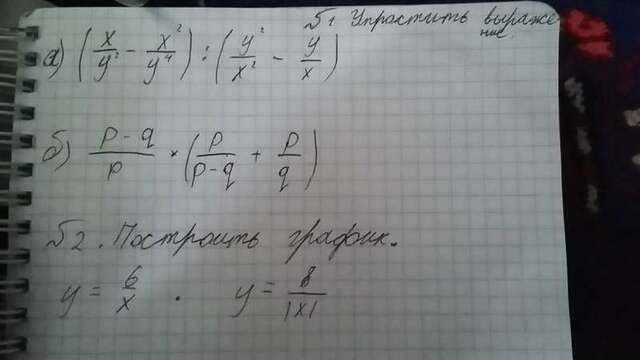 №1 Упростить выражение.
а) (x/y² - x²/y⁴) : (y²/x² - y/x)
б) p-q/p × (p/p-q + p/q)
№2. Построить график.
y = 6/x . y = 8/|x|